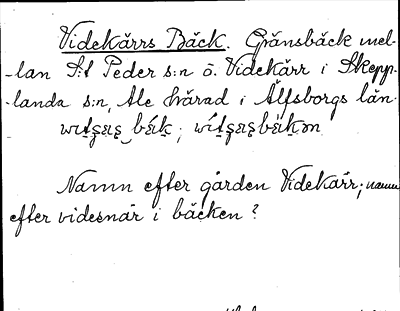 Videkärrs Bäck. Gränsbäck mel-
-lan S:t Peder s:n o. Videkärr i Skepp-
-landa s:n, Ale härad i Älfsborgs län.
Namn efter gården Videkärr; namn
efter videsnår i bäcken?